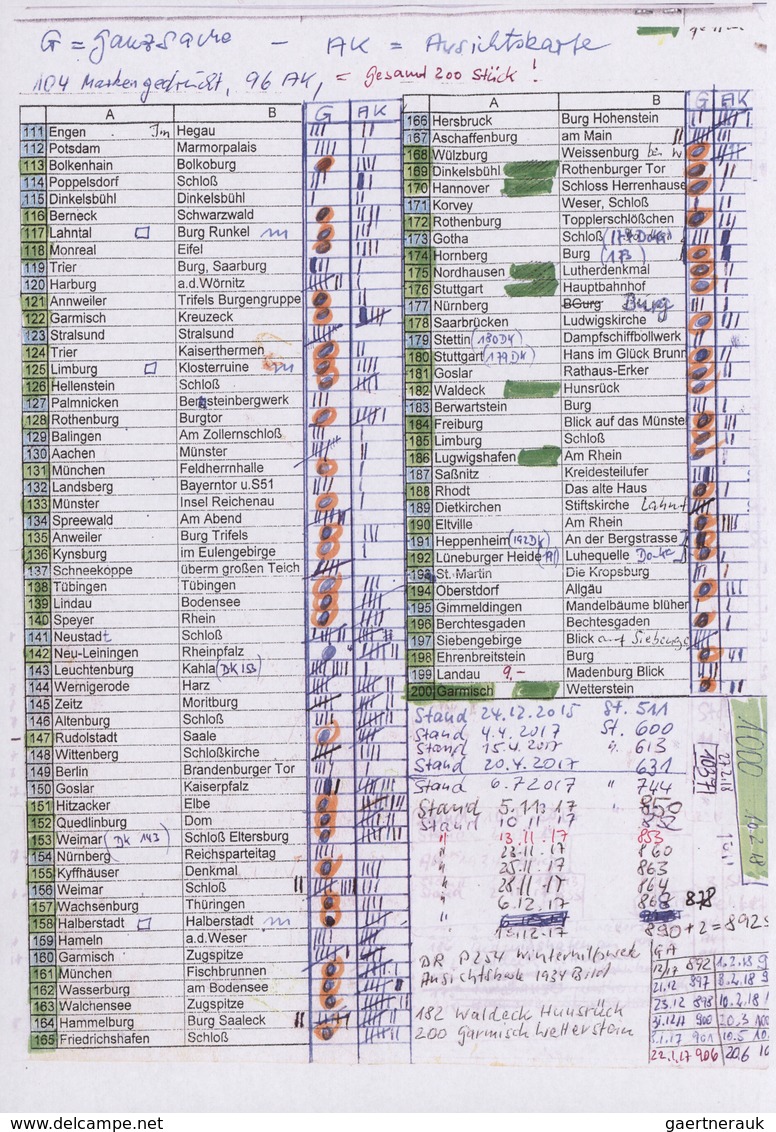 G = Ganzsache - AK = Ansichtskarte
104 Marken gedruckt, 96 AK, = gesamt 200 Stück!
A B G AK
111 Engen Im Hegau
112 Potsdam Marmorpalais
113 Bolkenhain Bolkoburg
114 Poppelsdorf Schloß
115 Dinkelsbühl Dinkelsbühl
116 Berneck Schwarzwald
117 Lahntal Burg Runkel
118 Monreal Eifel
119 Trier Burg, Saarburg
120 Harburg a.d.Wörnitz
121 Annweiler Trifels Burgengruppe
122 Garmisch Kreuzeck
123 Stralsund Stralsund
124 Trier Kaiserthermen
125 Limburg Klosterruine
126 Hellenstein Schloß
127 Palmnicken Bernsteinbergwerk
128 Rothenburg Burgtor
129 Balingen Am Zollernschloß
130 Aachen Münster
131 München Feldherrnhalle
132 Landsberg Bayerntor u.S51
133 Münster Insel Reichenau
134 Spreewald Am Abend
135 Anweiler Burg Trifels
136 Kynsburg im Eulengebirge
137 Schneekoppe überm großen Teich
138 Tübingen Tübingen
139 Lindau Bodensee
140 Speyer Rhein
141 Neustadt Schloß
142 Neu-Leiningen Rheinpfalz
143 Leuchtenburg Kahla (DK 153)
144 Wernigerode Harz
145 Zeitz Moritburg
146 Altenburg Schloß
147 Rudolstadt Saale
148 Wittenberg Schloßkirche
149 Berlin Brandenburger Tor
150 Goslar Kaiserpfalz
151 Hitzacker Elbe
152 Quedlinburg Dom
153 Weimar (DK 143) Schloß Eltersburg
154 Nürnberg Reichsparteitag
155 Kyffhäuser Denkmal
156 Weimar Schloß
157 Wachsenburg Thüringen
158 Halberstadt Halberstadt
159 Hameln a.d.Weser
160 Garmisch Zugspitze
161 München Fischbrunnen
162 Wasserburg am Bodensee
163 Walchensee Zugspitze
164 Hammelburg Burg Saaleck
165 Friedrichshafen Schloß
A B G AK
166 Hersbruck Burg Hohenstein
167 Aschaffenburg am Main
168 Wülzburg Weissenburg
169 Dinkelsbühl Rothenburger Tor
170 Hannover Schloss Herrenhause
171 Korvey Weser, Schloß
172 Rothenburg Topplerschlößchen
173 Gotha Schloß
174 Hornberg Burg (173)
175 Nordhausen Lutherdenkmal
176 Stuttgart Hauptbahnhof
177 Nürnberg BGurg Burg
178 Saarbrücken Ludwigskirche
179 Stettin (180DK) Dampfschiffbollwerk
180 Stuttgart (179DK) Hans im Glück Brunn
181 Goslar Rathaus-Erker
182 Waldeck Hunsrück
183 Berwartstein Burg
184 Freiburg Blick auf das Münste
185 Limburg Schloß
186 Lugwigshafen Am Rhein
187 Saßnitz Kreidesteilufer
188 Rhodt Das alte Haus
189 Dietkirchen Stiftskirche Lahnt
190 Eltville Am Rhein
191 Heppenheim (192DK) An der Bergstrasse
192 Lüneburger Heide Luhequelle
193 St. Martin Die Kropsburg
194 Oberstdorf Allgäu
195 Gimmeldingen Mandelbäume blühen
196 Berchtesgaden Bechtesgaden
197 Siebengebirge Blick auf Siebenge
198 Ehrenbreitstein Burg
199 Landau 9,- Madenburg Blick
200 Garmisch Wetterstein
Stand 24.12.2015 St. 511
Stand 4.4.2017 St. 600
Stand 15.4.2017 " 613
Stand 20.4.2017 631
Stand 6.7.2017 " 744
Stand 5.11.17 " 850
Stand 10.11.17 852
" 13.11.17 853
" 23.11.17 860
" 25.11.17 863
" 28.11.17 864
" 6.12.17 868 878
" 13.12.17 890+2=892
DR P254 Winterhilfswerk
Ansichtsbank 1934 Bild
182 Waldeck Hunsrück
200 Garmisch Wetterstein
1000 10.2.18
1037
GA
892 1.2.18
21.12 897 8.2.18
23.12 898 10.2.18
900 20.3
901 10.5
22.1.17 906 20.6
www.delcampe.net
gaertnerauk